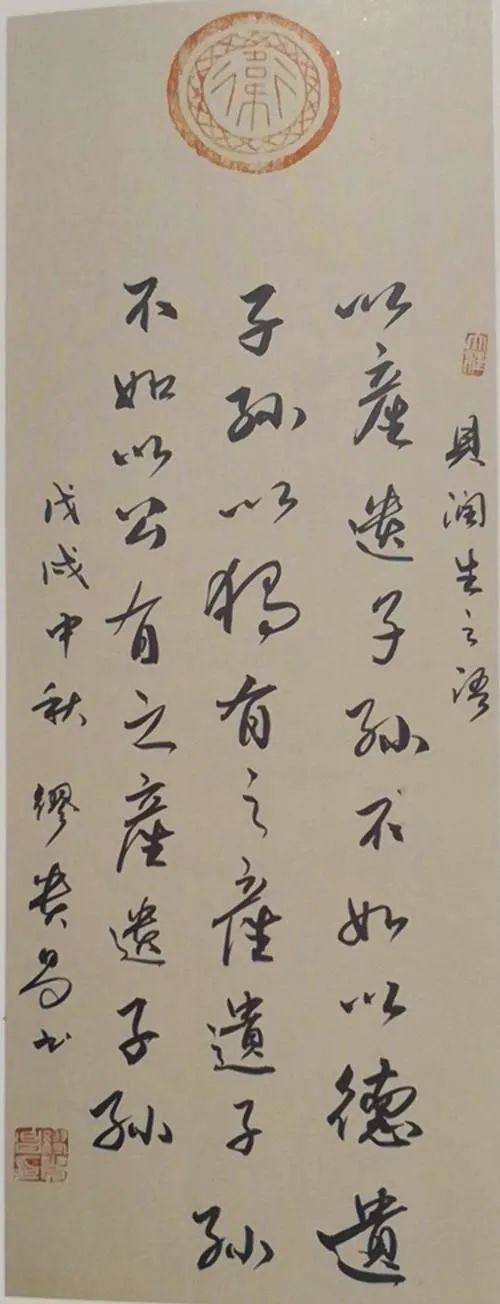 貝潤生之語
以產遺子孫不如以德遺
子孫以獨有之產遺子孫
不如以公有之產遺子孫
戊戌中秋 繆貴昌書